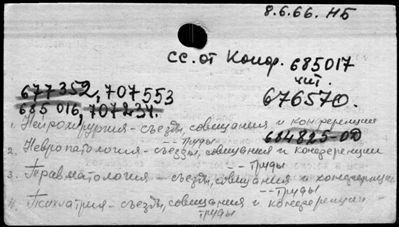 8.6.66. НБ
сс. от Конф. 685017
чит.
677352, 707553
676570.
685016, 707237.
1. Нейрохирургия - съезды, совещания и конференции
-- Труды 684825-00
2. Невропатология - съезды, совещания и конференции
-- Труды
3. Травматология - съезды, совещания и конференции
-- Труды
4. Психиатрия - съезды, совещания и конференции
Труды